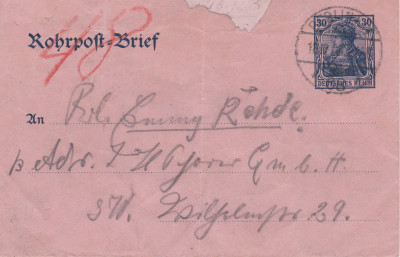 BERLIN
30 30
DEUTSCHES REICH
48
Rohrpost-Brief
An Frl. Emmy Rohde.
p Adr. Scherl G.m.b.H.
SW. Wilhelmstr 29.